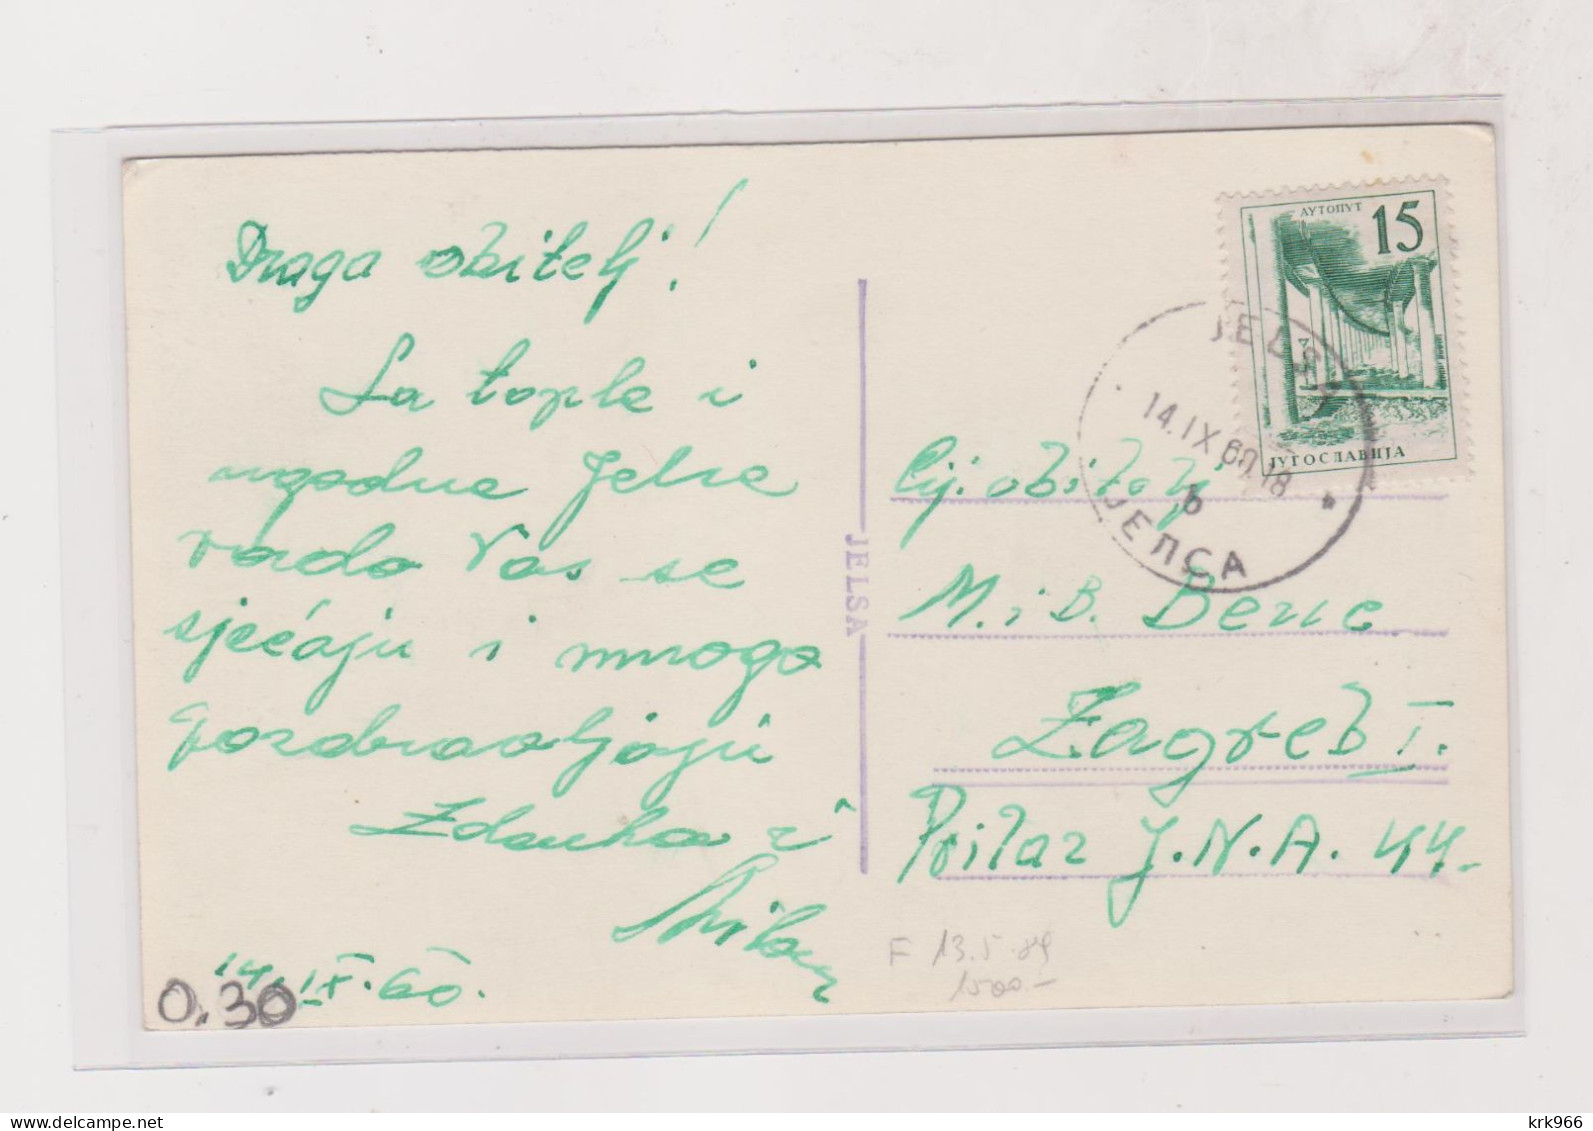 Draga obitelj!
Sa tople i
ugodne Jelse
rado Vas se
sjećaju i mnogo
pozdravljaju
Zdenka i
Milan
14.IX.60.
0.30
JELSA
АУТОПУТ 15
ЈУГОСЛАВИЈА
JELSA
14.IX 60.18
b
ЈЕЛСА
Cij. obitelj
M. i B. Bene
Zagreb I.
Prilaz J.N.A. 44.
F 13.5.89
1500.-
krk966